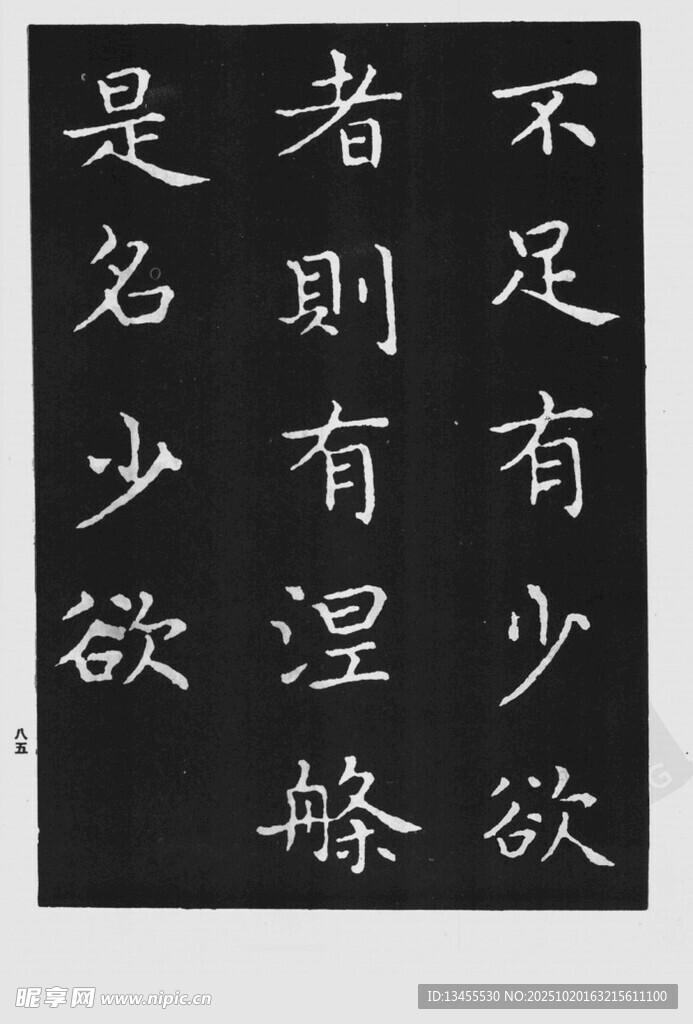 不足有少欲
者則有涅槃
是名少欲
八五
昵享网 www.nipic.cn
ID:13455530 NO:20251020163215611100